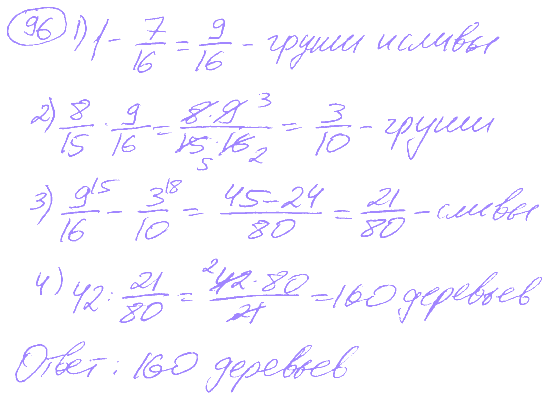 96 1) 1 - 7/16 = 9/16 - груши и сливы
2) 8/15 · 9/16 = 8·9 3/15·16 5 2 = 3/10 - груши
3) 9/16 15 - 3/10 18 = 45-24/80 = 21/80 - сливы
4) 42 : 21/80 = 2 42·80/21 = 160 деревьев
Ответ: 160 деревьев